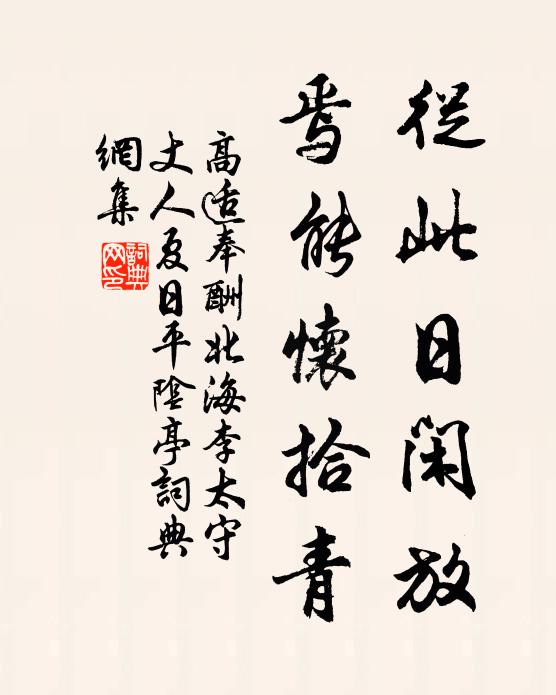 從此日閑放
焉能懷拾青
高适奉酬北海李太守
丈人夏日平陰亭詞典
網集
詞典
網印